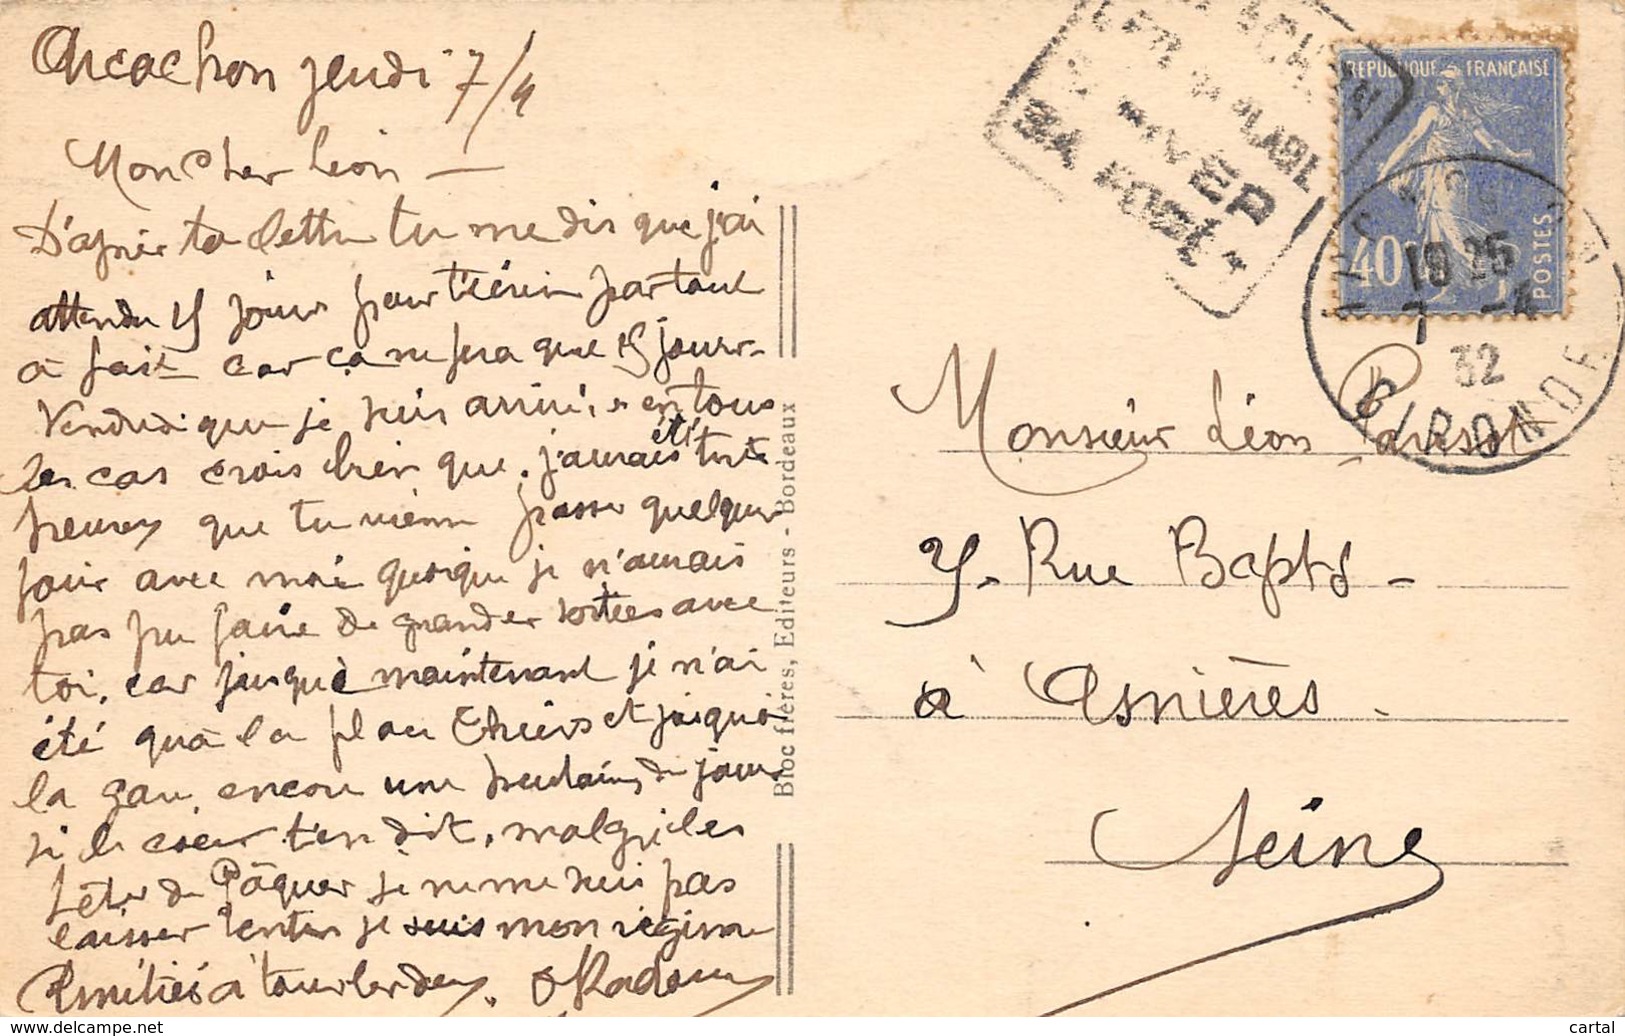 Arcachon jeudi 7/4
Mon cher Léon —
D'après ta lettre tu me dis que j'ai
attendu 15 jours pour t'écrire pas tout
à fait car ça ne fera que 15 jours
Vendredi que je suis arrivé, en tous
les cas crois bien que j'aurais été très
heureux que tu vienne passer quelques
jours avec moi quoique je n'aurais
pas pu faire de grandes sorties avec
toi, car jusqu'à maintenant je n'ai
été qu'à la place Thiers et jusqu'à
la gare, encore une huitaine de jours
si le cœur t'en dit, malgré les
fêtes de Pâques je ne me suis pas
laissé tenter je suis mon régime
Amitiés à tous les deux.
Bloc frères, Editeurs - Bordeaux
REPUBLIQUE FRANÇAISE
40c
POSTES
18 25
7 -4
32
GIRONDE
Monsieur Léon
5. Rue Bapst -
à Asnières -
Seine
cartal
www.delcampe.net